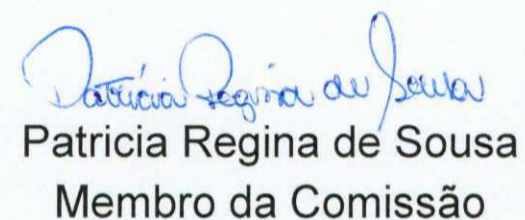 Patrícia Regina de Sousa
Patricia Regina de Sousa
Membro da Comissão